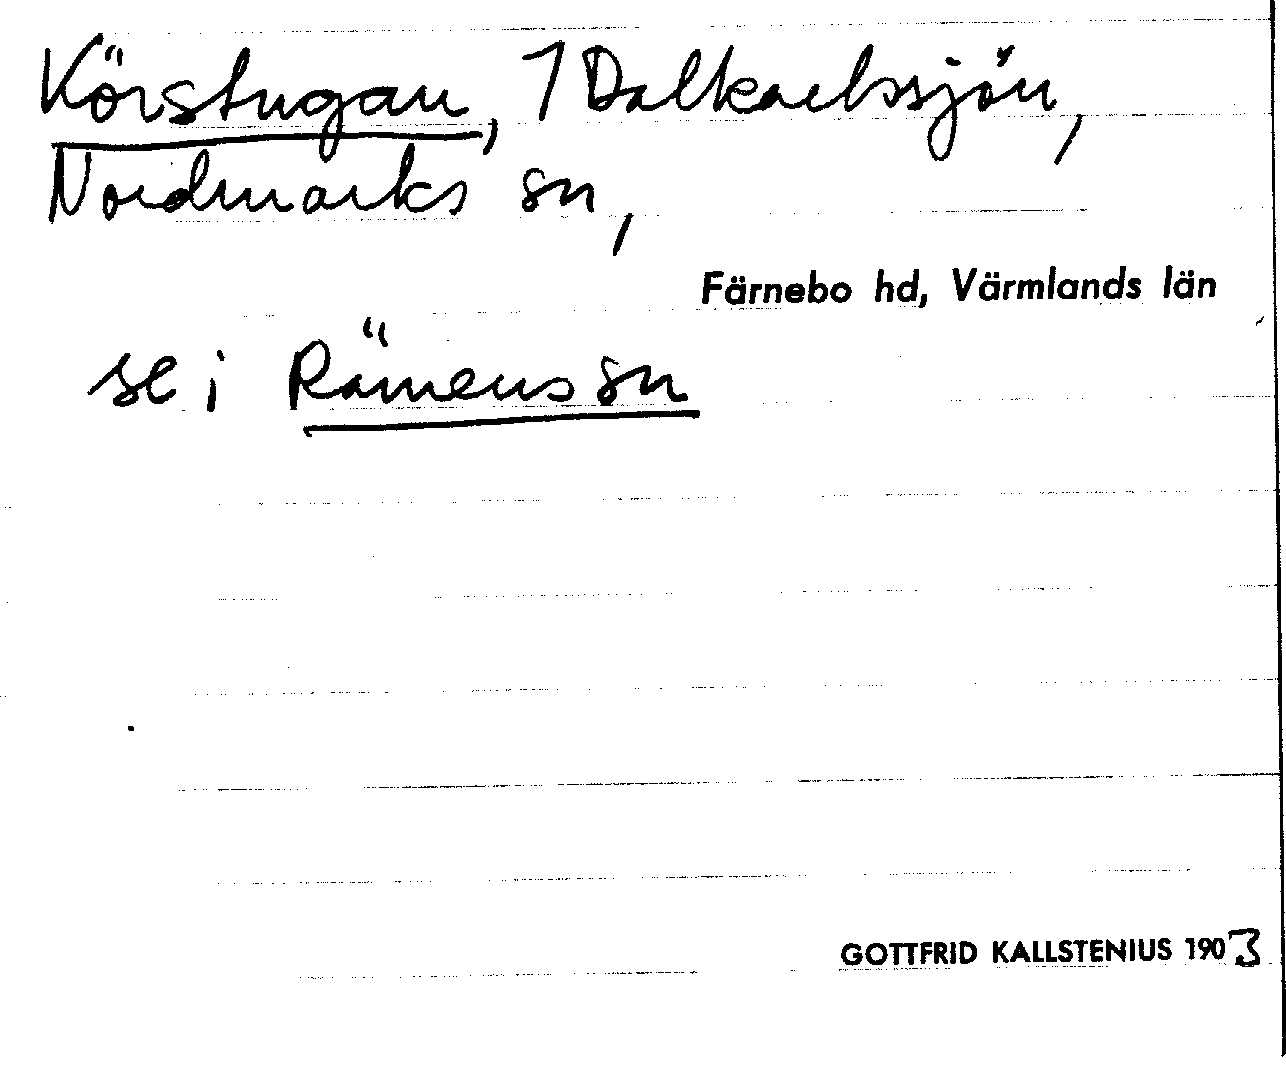 Körstugan, 1 Dalkarlssjön,
Nordmarks sn,
Färnebo hd, Värmlands län
se i Rämens sn
GOTTFRID KALLSTENIUS 1903